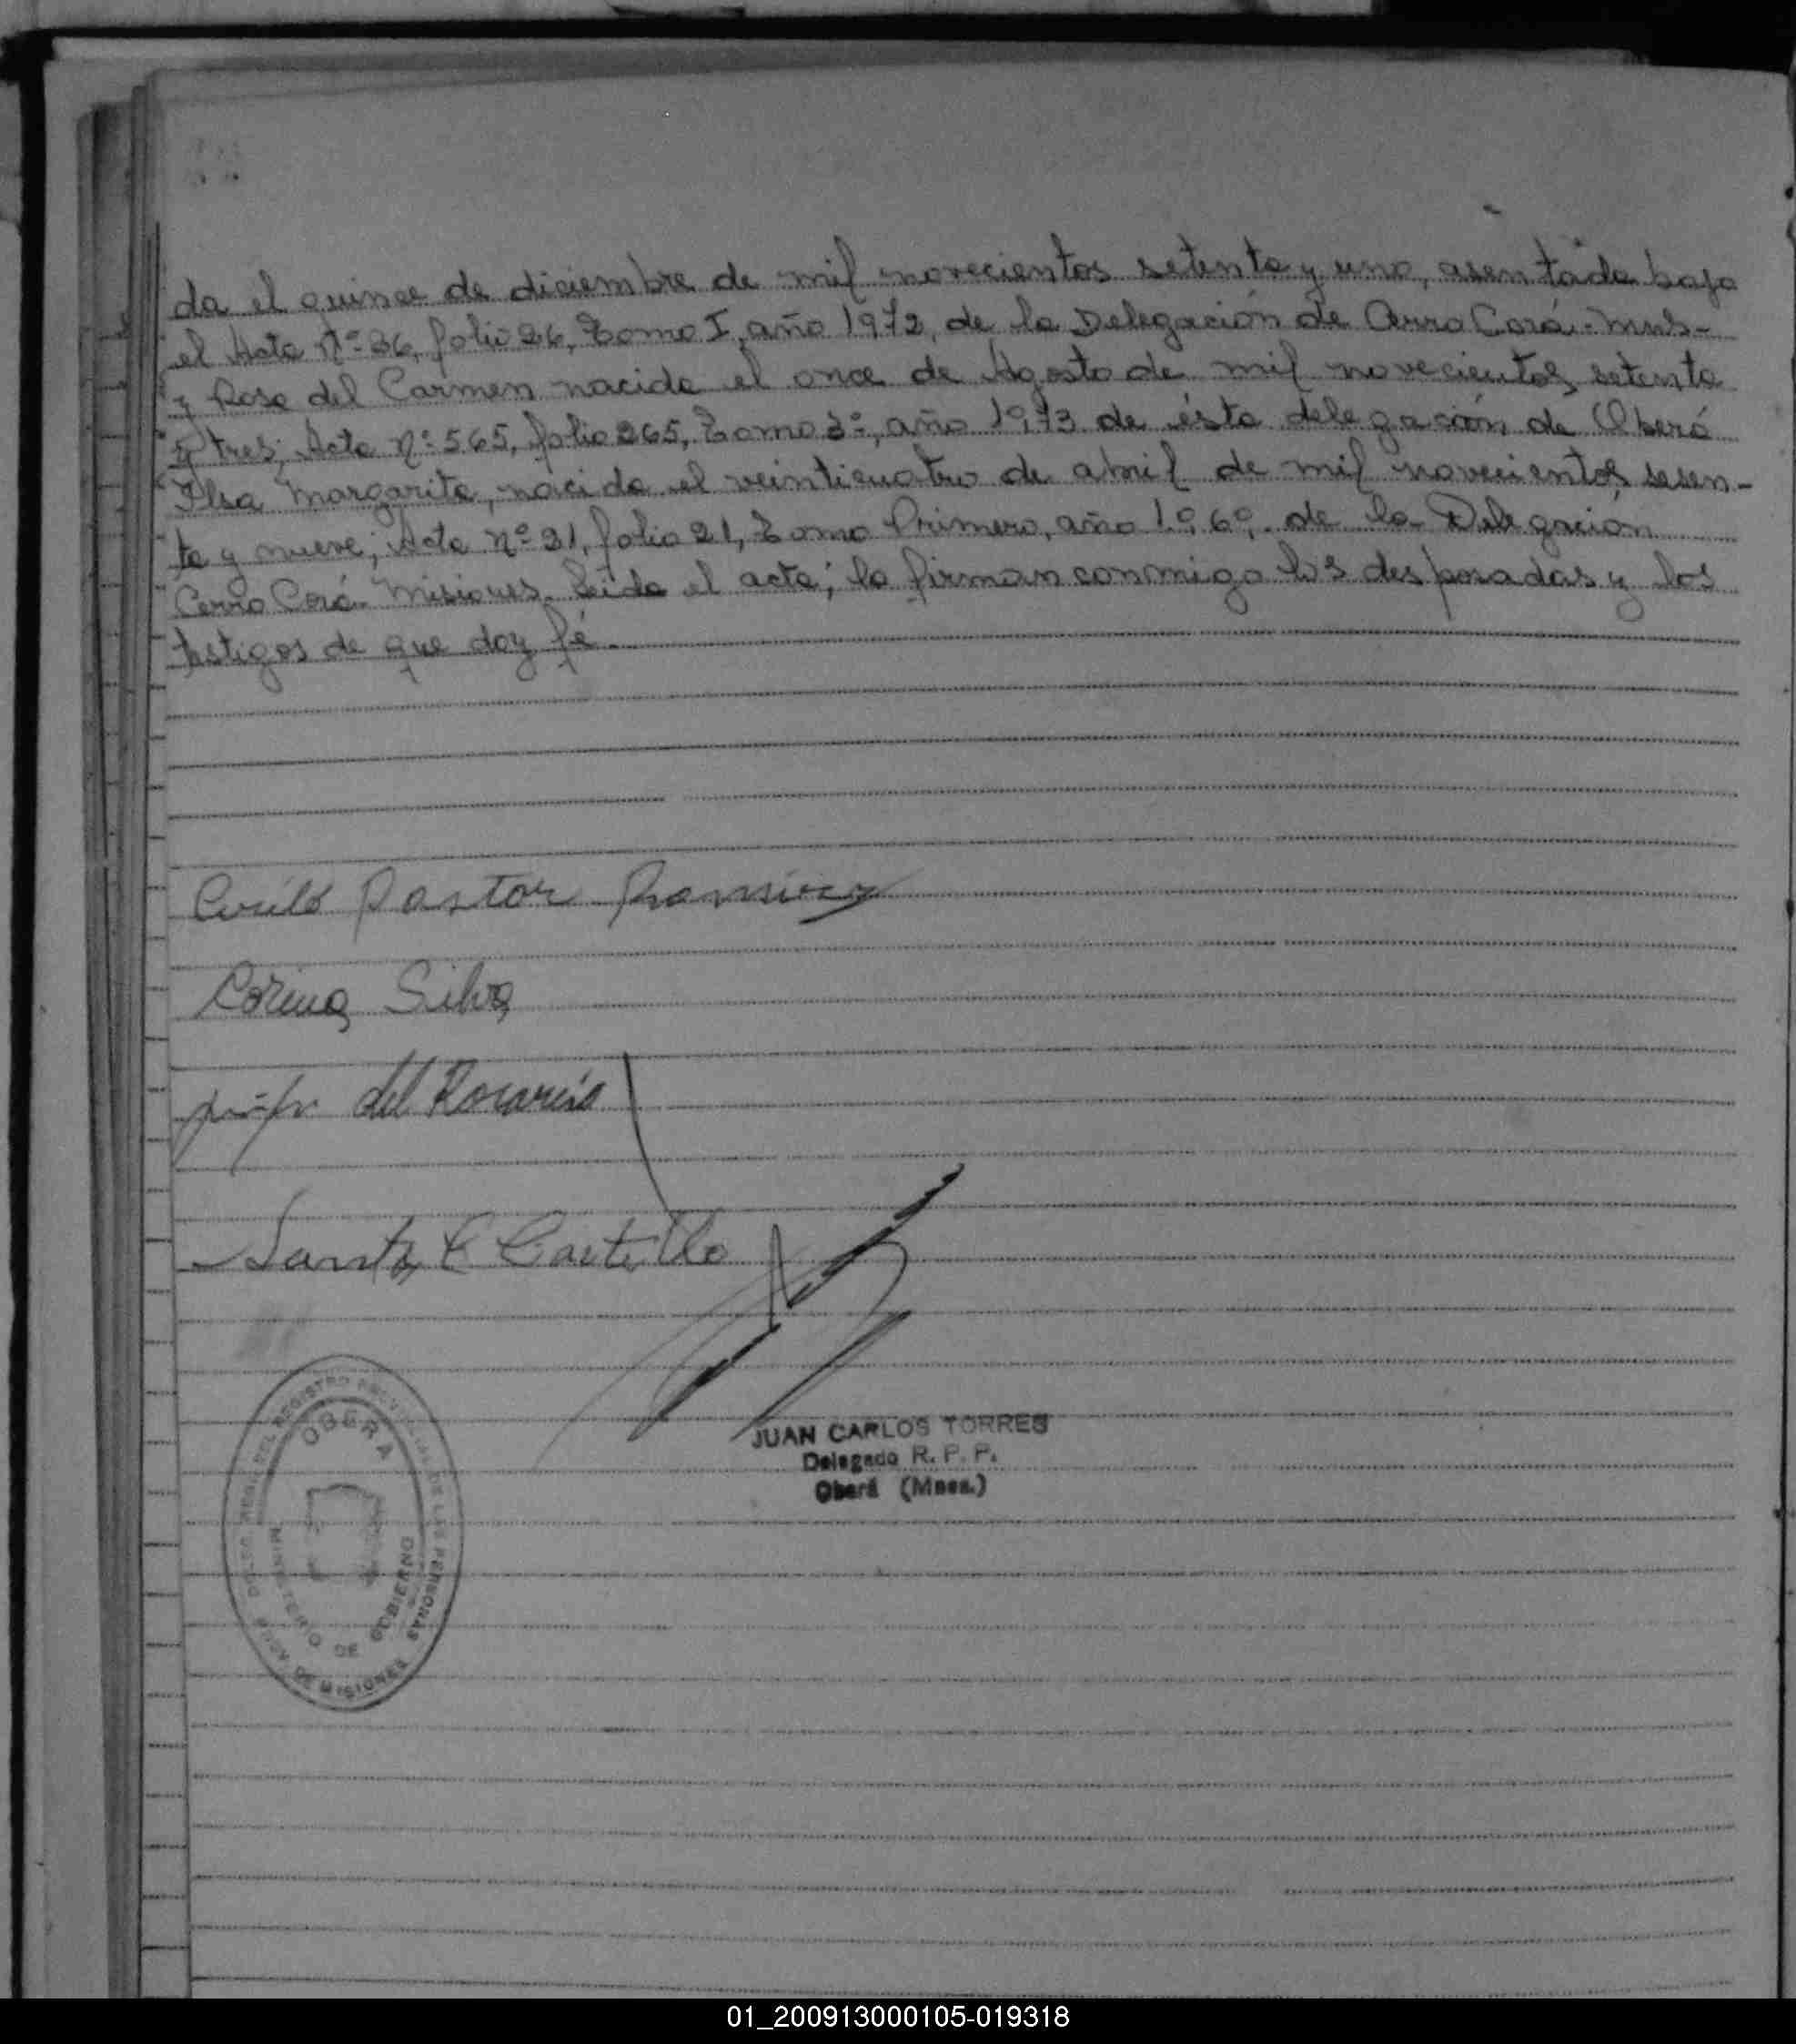 da el quince de diciembre de mil novecientos setenta y uno, asentada bajo
el Acta Nº 26, folio 26, Tomo I, año 1972, de la Delegación de Cerro Corá - Mnes-
y Rosa del Carmen nacida el once de Agosto de mil novecientos setenta
y tres, Acta Nº 565, folio 265, Tomo 3º, año 1973 de ésta delegación de Oberá
Ilsa Margarita, nacida el veinticuatro de abril de mil novecientos sesen-
ta y nueve, Acta Nº 21, folio 21, Tomo Primero, año 1969, de la Delegación
Cerro Corá - Misiones. Leída el acta, la firman conmigo los desposados y los
testigos de que doy fé.
Cirilo Pastor Ramirez
Corina Silva
del Rosario
Santa C Castillo
OBERA
REGISTRO PROVINCIAL DE LAS PERSONAS
MINISTERIO DE GOBIERNO
DE MISIONES
JUAN CARLOS TORRES
Delegado R. P. P.
Oberá (Mnes.)
01_200913000105-019318